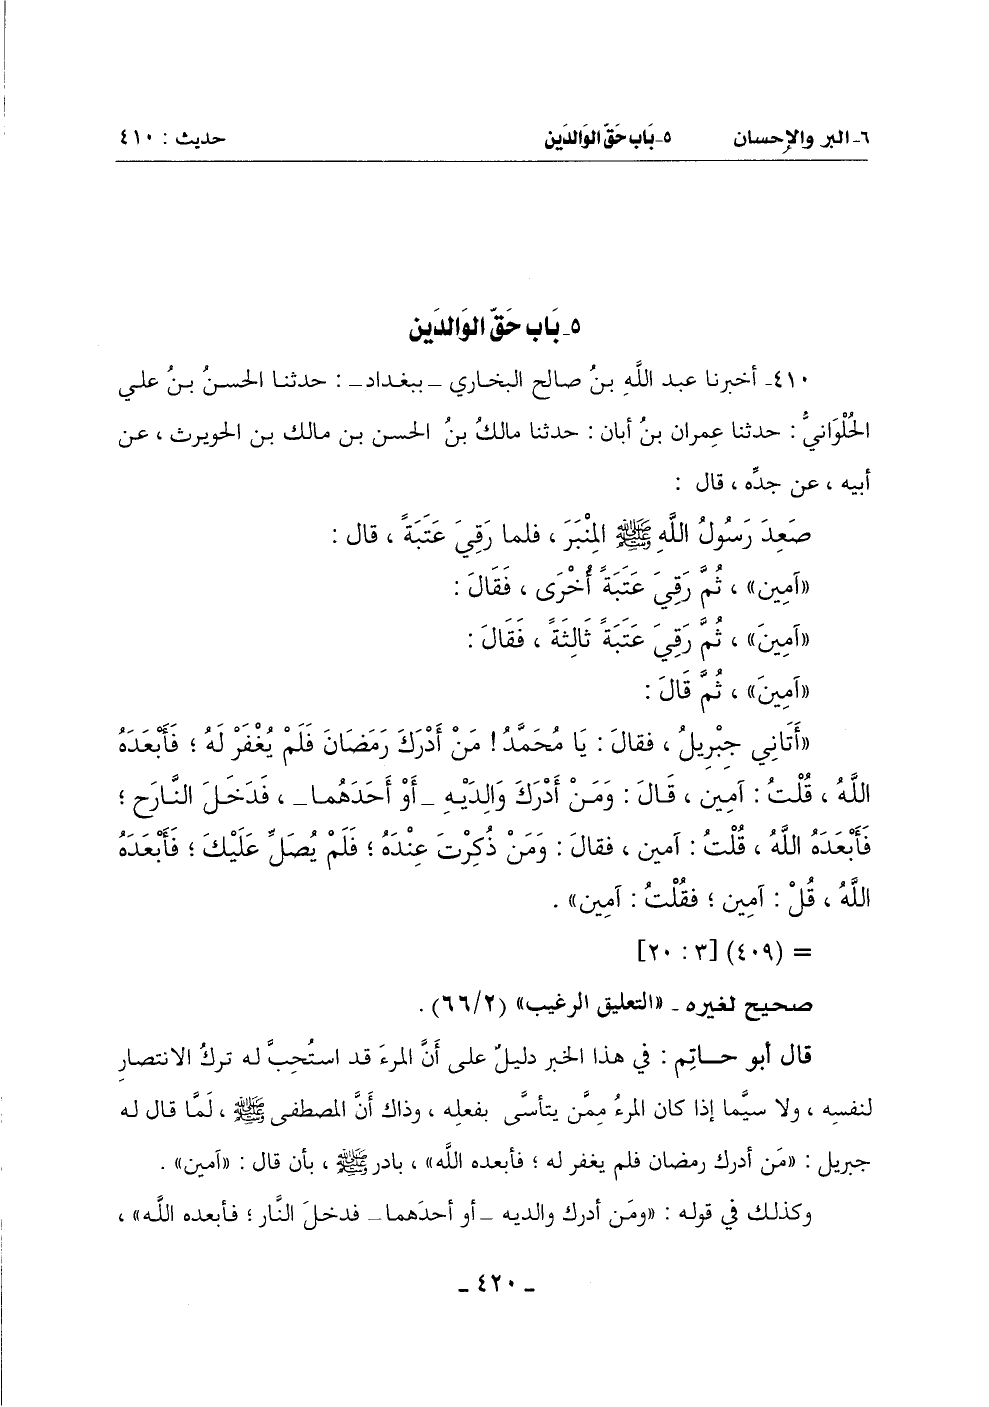 ٦- البر والإحسان ٥- بَاب حَقّ الوَالدَين حديث : ٤١٠
٥- بَاب حَقّ الوَالدَين
٤١٠- أخبرنا عبد اللَّهِ بنُ صالح البخاري – ببغداد – : حدثنا الحسنُ بنُ علي
الحُلْوَانيُّ : حدثنا عِمران بنُ أبان : حدثنا مالكُ بنُ الحسن بن مالك بن الحويرث ، عن
أبيه ، عن جدِّه ، قال :
صَعِدَ رَسُولُ اللَّهِ ﷺ المِنْبَرَ ، فلما رَقِيَ عَتَبَةً ، قال :
«آمِين» ، ثُمَّ رَقِيَ عَتَبَةً أُخْرَى ، فَقَالَ :
«آمِينَ» ، ثُمَّ رَقِيَ عَتَبَةً ثَالِثَةً ، فَقَالَ :
«آمِينَ» ، ثُمَّ قَالَ :
«أَتَانِي جِبْرِيلُ ، فقالَ : يَا مُحَمَّدُ! مَنْ أَدْرَكَ رَمَضَانَ فَلَمْ يُغْفَرْ لَهُ ؛ فَأَبْعَدَهُ
اللَّهُ ، قُلْتُ : آمِين ، قَالَ : وَمَنْ أَدْرَكَ وَالِدَيْهِ – أَوْ أَحَدَهُما – ، فَدَخَلَ النَّارَح ؛
فَأَبْعَدَهُ اللَّهُ ، قُلْتُ : آمين ، فقالَ : وَمَنْ ذُكِرْتَ عِنْدَهُ ؛ فَلَمْ يُصَلِّ عَلَيْكَ ؛ فَأَبْعَدَهُ
اللَّهُ ، قُلْ : آمِين ؛ فقُلْتُ : آمِين» .
= (٤٠٩) [٣ : ٢٠]
صحيح لغيره - «التعليق الرغيب» (٢/ ٦٦) .
قال أبو حاتِم : في هذا الخبر دليلٌ على أَنَّ المرءَ قد استُحِبَّ له تركُ الانتصارِ
لنفسِه ، ولا سيَّما إذا كان المرءُ مِمَّن يتأسَّى بفعلِه ، وذاك أَنَّ المصطفى ﷺ ، لَمَّا قال له
جبريل : «مَن أدرك رمضان فلم يغفر له ؛ فأبعده اللَّه» ، بادر ﷺ ، بأن قال : «آمين» .
وكذلك في قوله : «ومَن أدرك والديه – أو أحدَهما – فدخلَ النَّار ؛ فأبعده اللَّه» ،
- ٤٢٠ -